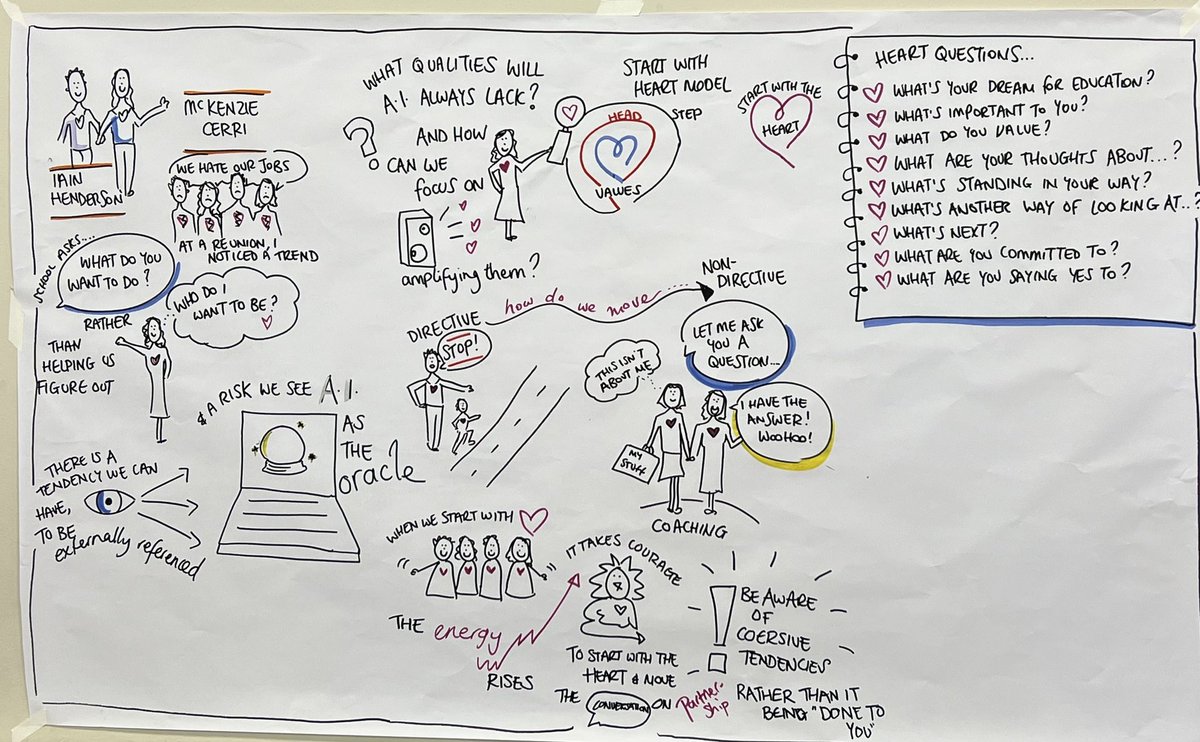 IAIN
HENDERSON
MCKENZIE
CERRI
WE HATE OUR JOBS
AT A REUNION, I
NOTICED A TREND
SCHOOL ASKS....
WHAT DO YOU
WANT TO DO?
RATHER
THAN
HELPING US
FIGURE OUT
WHO DO I
WANT TO BE?
THERE IS A
TENDENCY WE CAN
HAVE,
TO BE
externally referenced
& A RISK WE SEE A.I.
AS
THE
oracle
WHAT QUALITIES WILL
A.I. ALWAYS LACK?
?
AND HOW
CAN WE
FOCUS ON
amplifying them?
START WITH
HEART MODEL
HEAD
STEP
VALUES
START WITH THE
HEART
how do we move....
DIRECTIVE
STOP!
NON-
DIRECTIVE
LET ME ASK
YOU A
QUESTION...
THIS ISN'T
ABOUT ME
I HAVE THE
ANSWER!
WOOHOO!
MY
STUFF
COACHING
WHEN WE START WITH
THE energy
RISES
IT TAKES COURAGE
TO START WITH THE
HEART & MOVE
THE CONVERSATION ON
!
BE AWARE
OF
COERSIVE
TENDENCIES
Partner-
ship
RATHER THAN IT
BEING "DONE TO
YOU"
HEART QUESTIONS...
WHAT'S YOUR DREAM FOR EDUCATION?
WHAT'S IMPORTANT TO YOU?
WHAT DO YOU VALUE?
WHAT ARE YOUR THOUGHTS ABOUT...?
WHAT'S STANDING IN YOUR WAY?
WHAT'S ANOTHER WAY OF LOOKING AT..?
WHAT'S NEXT?
WHAT ARE YOU COMMITTED TO?
WHAT ARE YOU SAYING YES TO?